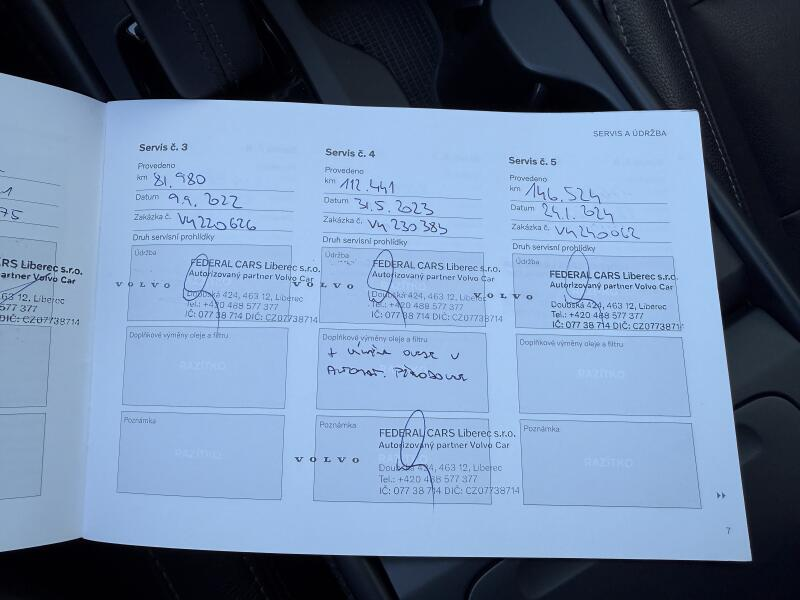 SERVIS A ÚDRŽBA
Servis č. 3
Provedeno
km 81.980
Datum 9.9. 2022
Zakázka č. VY220626
Druh servisní prohlídky
Údržba
VOLVO
FEDERAL CARS Liberec s.r.o.
Autorizovaný partner Volvo Car
Doubská 424, 463 12, Liberec
Tel.: +420 488 577 377
IČ: 077 38 714 DIČ: CZ07738714
Doplňkové výměny oleje a filtru
RAZÍTKO
Poznámka
RAZÍTKO
Servis č. 4
Provedeno
km 112.441
Datum 31.5. 2023
Zakázka č. VY 230383
Druh servisní prohlídky
Údržba
VOLVO
FEDERAL CARS Liberec s.r.o.
Autorizovaný partner Volvo Car
Doubská 424, 463 12, Liberec
Tel.: +420 488 577 377
IČ: 077 38 714 DIČ: CZ07738714
Doplňkové výměny oleje a filtru
+ výměna oleje v
automat. převodovce
Poznámka
VOLVO
FEDERAL CARS Liberec s.r.o.
Autorizovaný partner Volvo Car
Doubská 424, 463 12, Liberec
Tel.: +420 488 577 377
IČ: 077 38 714 DIČ: CZ07738714
Servis č. 5
Provedeno
km 146.524
Datum 24.1. 2024
Zakázka č. VY240062
Druh servisní prohlídky
Údržba
VOLVO
FEDERAL CARS Liberec s.r.o.
Autorizovaný partner Volvo Car
Doubská 424, 463 12, Liberec
Tel.: +420 488 577 377
IČ: 077 38 714 DIČ: CZ07738714
Doplňkové výměny oleje a filtru
RAZÍTKO
Poznámka
RAZÍTKO
7
1
75
CARS Liberec s.r.o.
partner Volvo Car
63 12, Liberec
577 377
DIČ: CZ07738714